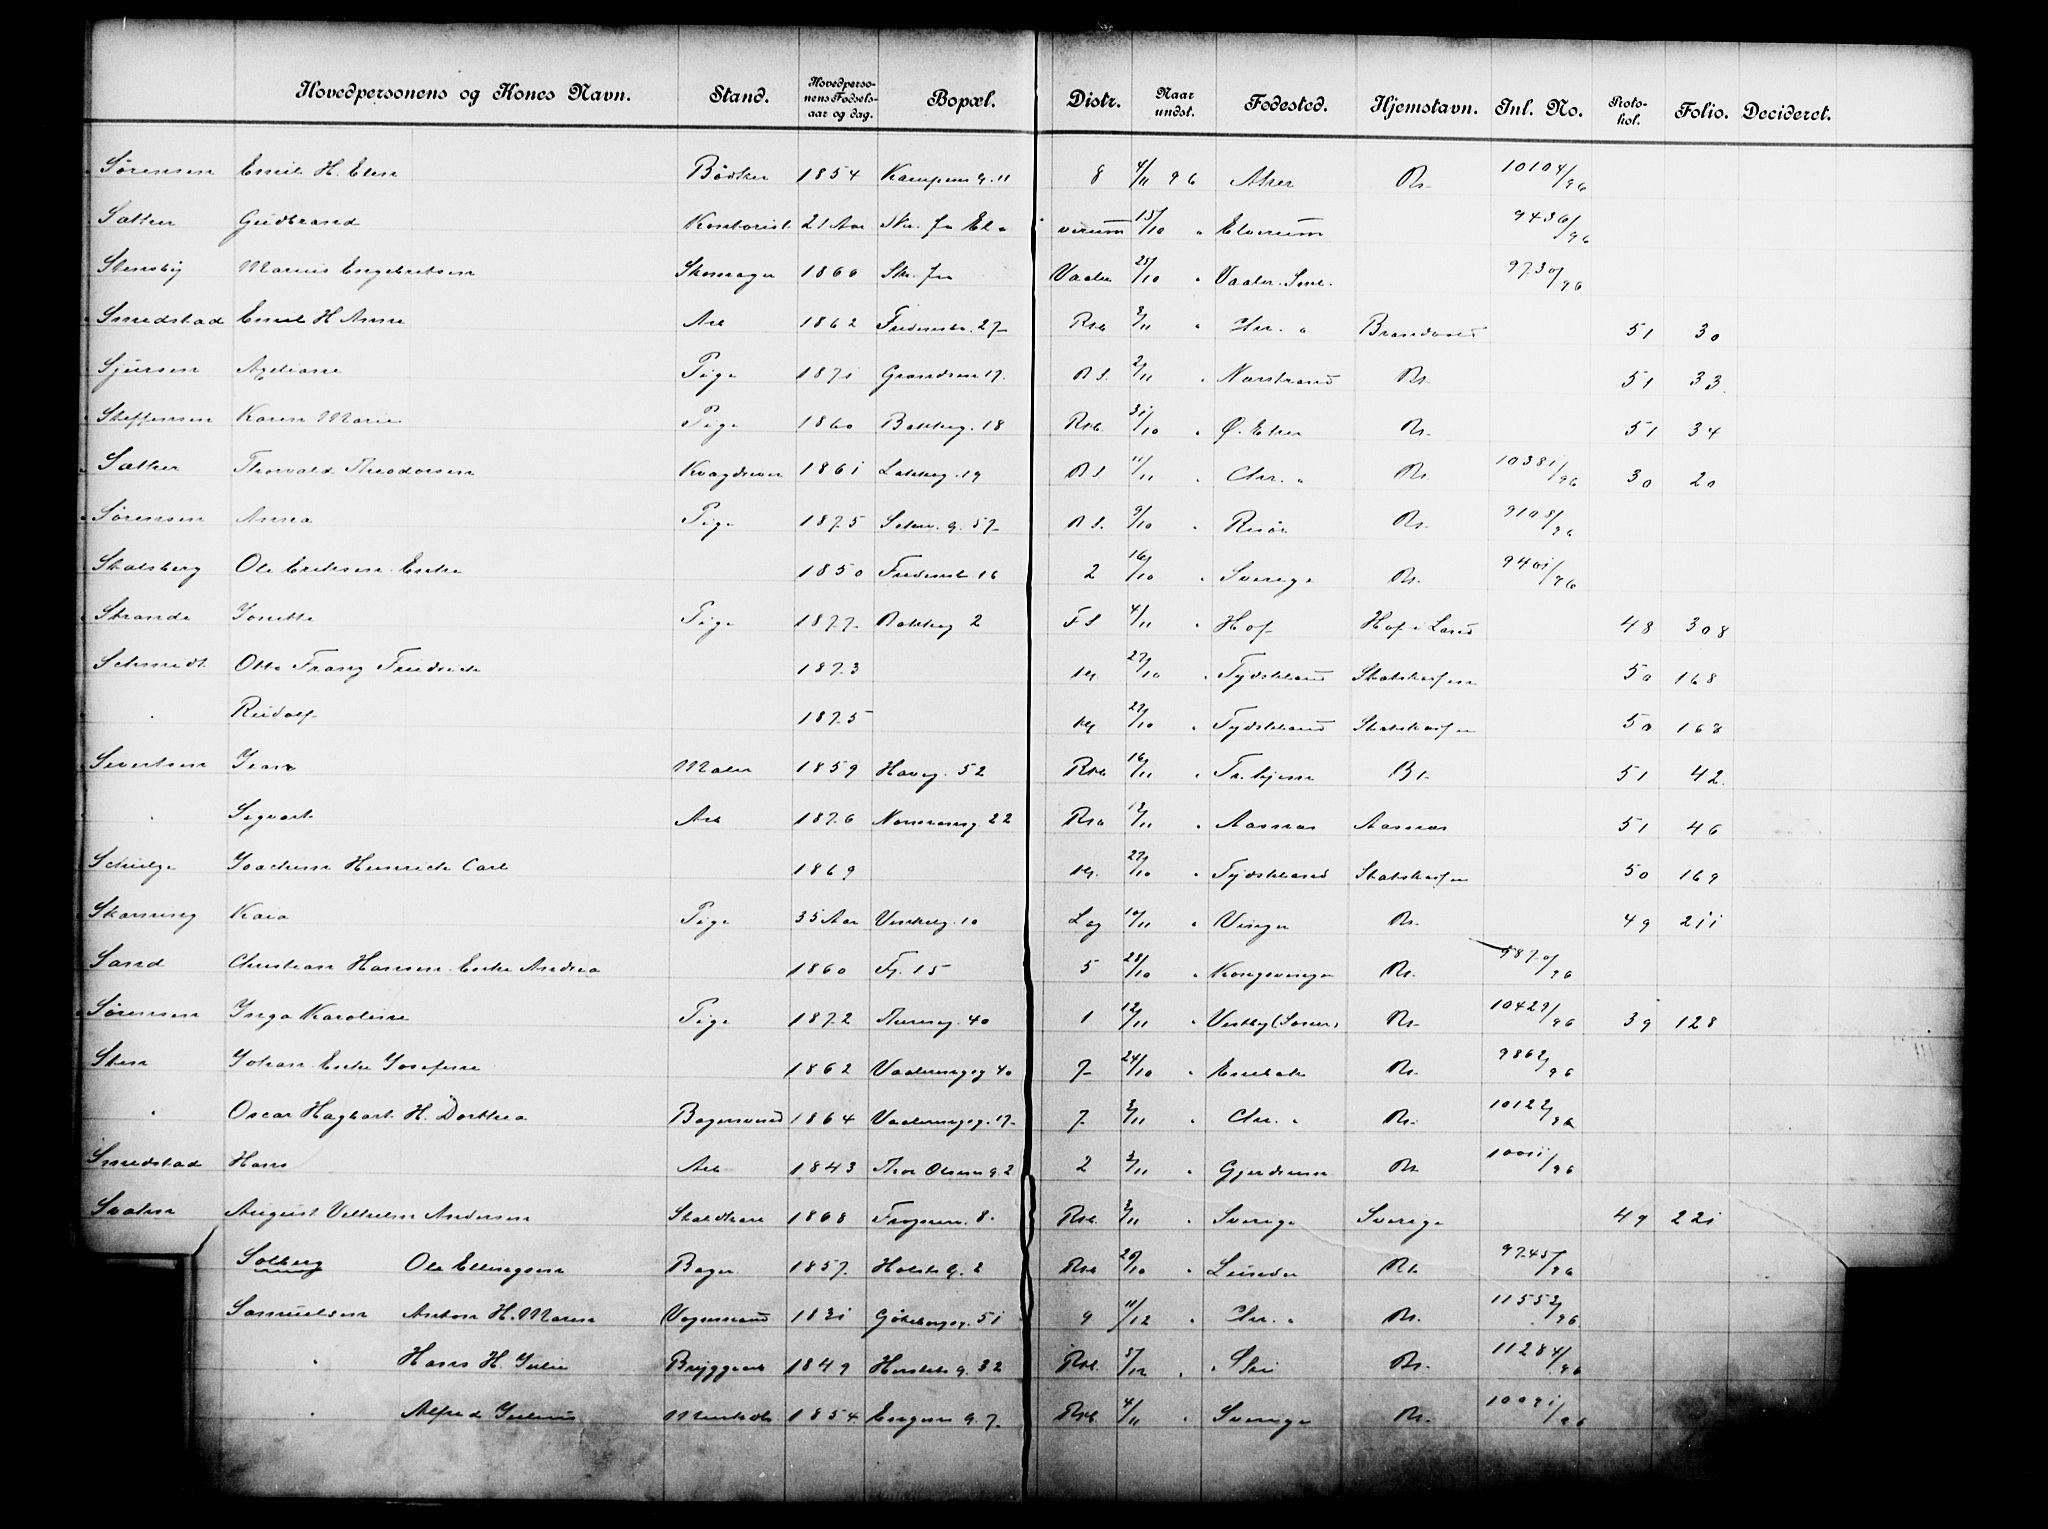 Hovedpersonens og Kones Navn. Stand. Hovedperso-nens Fødsels-aar og dag. Bopæl. Distr. Naar undst. Fødested. Hjemstavn. Inl. No. Proto-kol. Folio. Decideret.
Sørensen Emil H. Elen Bødker 1854 Kampens g. 11 8 4/11 96 Aker Kr. 10104/96
Sæther Gudbrand Kontorist 21 Aar Skr. fra El- verum 15/10 " Elverum 9436/96
Stensby Marius Engebretsen Skomager 1860 Skr. fra Vaaler 23/10 " Vaaler Sml. 9730/96
Smedstad Emil H Anna Arb 1862 Fredensb. 27 Rst. 3/11 " Chr. " Brandvold 51 30
Sjursen Pige 1871 Grønds 17. R.S. 2/11 " Nøtstrand Kr. 51 33
Steffensen Karen Marie Pige 1860 Bakkeg. 18 Rst. 31/10 " Ø. Eker Kr. 51 34
Sæther Thorvald Theodorsen Kvægdriver 1861 Lakkeg. 19 R.S. 11/11 " Chr. " Kr. 10381/96 30 20
Sørensen Anna Pige 1875 Schw. g. 57 R.S. 9/10 " Risør Kr. 9108/96
Skolsberg Ole Eriksen Enke 1850 Fredensb 16 2 16/10 " Sverige Kr. 9401/96
Strande Jonette Pige 1877 Bakkeg 2 F.S 4/11 " Hof Hof i Land 48 308
Schmidt Otto Franz Friedrich 1873 27/10 " Tydskland Statskassen 50 168
" Rudolf 1875 27/10 " Tydskland Statskassen 50 168
Sivertsen Maler 1859 Haveg. 52 Rst. 16/11 " Tr.hjem Kr. 51 42
" Sigvart Arb 1876 22 Rst. 12/11 " Aasnæs Aasnæs 51 46
Schulze Joachim Heinrich Carl 1869 27/10 " Tydskland Statskassen 50 169
Skanning Kaia Pige 35 Aar 10 Lag 10/11 " Vinger Kr. 49 211
Sand Christian Hansen Enke Andrea 1860 Fj. 15 5 28/10 " Kongsvinger Kr. 9870/96
Sørensen Inga Karoline Pige 1872 Thereseg. 40 1 12/11 " Vestby (Soner) Kr. 10429/96 39 128
Sten Johan Enke Josefine 1862 Vaalerengsg 40 7 24/10 " Enebak Kr. 9862/96
" Oscar Hagbart H. Dorthea Bagersvend 1864 Vaalerengsg. 17 7 3/11 " Chr. " Kr. 10122/96
Smedstad Hans Arb 1843 Thor Olsens g. 2 2 3/11 " Gjerdrum Kr. 10011/96
Svalin August Vilhelm Andersen Staldkarl 1868 Frognerv. 8. Rst. 3/11 " Sverige Sverige 49 221
Solberg Ole Ellingsen Bager 1857 Holsts g. 2 Rst. 20/10 " Lunder Kr. 9745/96
Samuelsen Anton H. Maren Vognmand 1831 Gøteborgg. 51 9 11/12 " Chr. " Kr. 11552/96
" Hans H. Julie Bryggearb 1849 Herslebs g. 32 Rst. 5/12 " Ski Kr. 11284/96
" Alfred Julius 1854 Engens g. 7 Rst. 4/11 " Sverige Kr. 10091/96